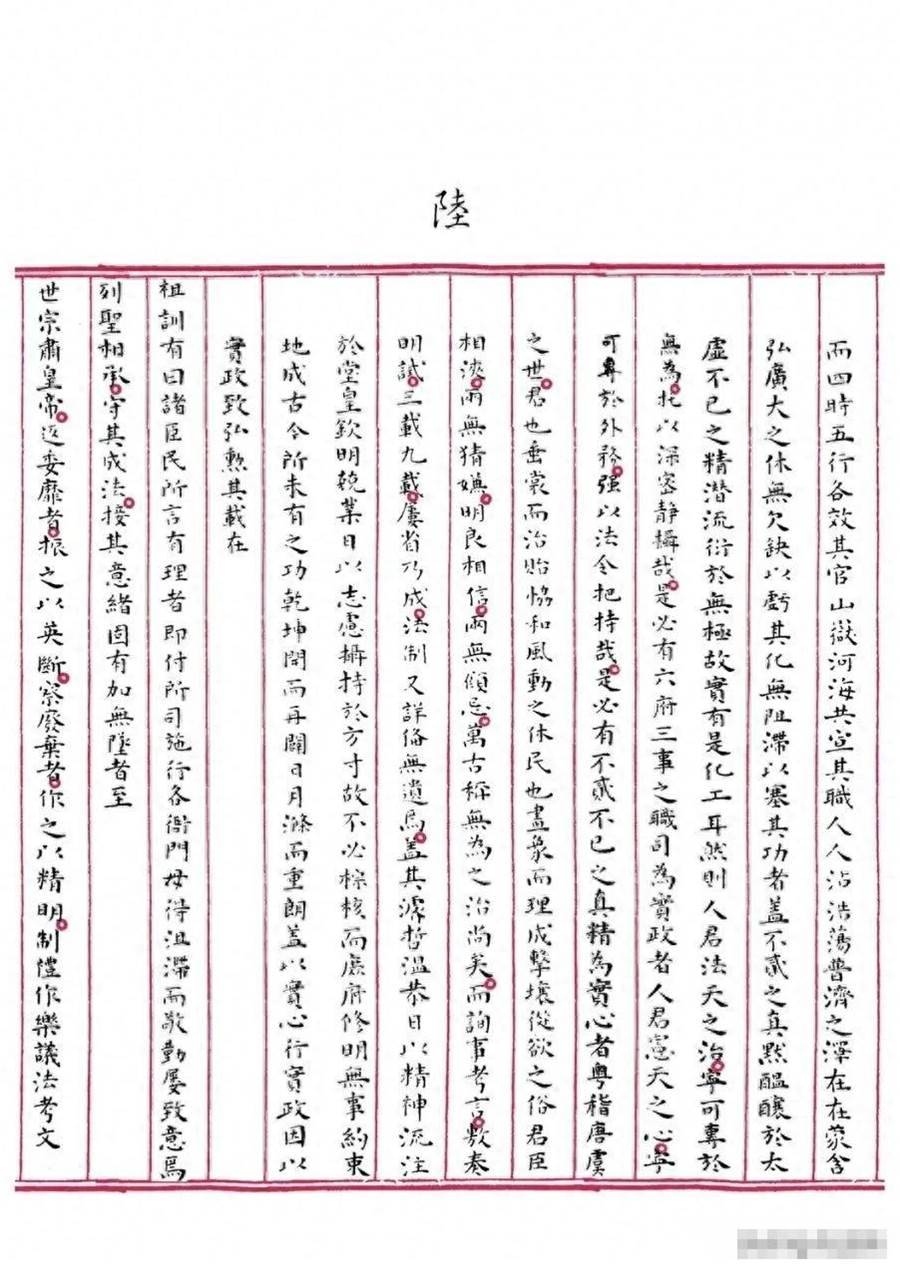 陸
而四時五行各效其官山嶽河海共宣其職人人沾浩蕩普濟之澤在在蒙含
弘廣大之休無欠缺以虧其化無阻滯以塞其功者蓋不貳之真默醞釀於太
虛不已之精潛流衍於無極故實有是化工耳然則人君法天之治寧可專於
無為托以深密靜攝哉是必有六府三事之職司為實政者人君憲天之心寧
可專於外務强以法令把持哉是必有不貳不已之真精為實心者粵稽唐虞
之世君也垂裳而治貽協和風動之休民也畫象而理成擊壤從欲之俗君臣
相浹兩無猜嫌明良相信兩無傾忌萬古稱無為之治尚矣而詢事考言敷奏
明試三載九載屢省乃成法制又詳俻無遺焉蓋其濬哲溫恭日以精神流注
於堂皇欽明兢業日以志慮攝持於方寸故不必棕核而處府修明無事約束
地成古今所未有之功乾坤開而再闢日月滌而重朗蓋以實心行實政因以
實政致弘勲其載在
祖訓有曰諸臣民所言有理者即付所司施行各衙門毋得沮滯而敬勤屢致意焉
列聖相承守其成法接其意緒固有加無墜者至
世宗肅皇帝返委靡者振之以英斷察廢棄者作之以精明制禮作樂議法考文